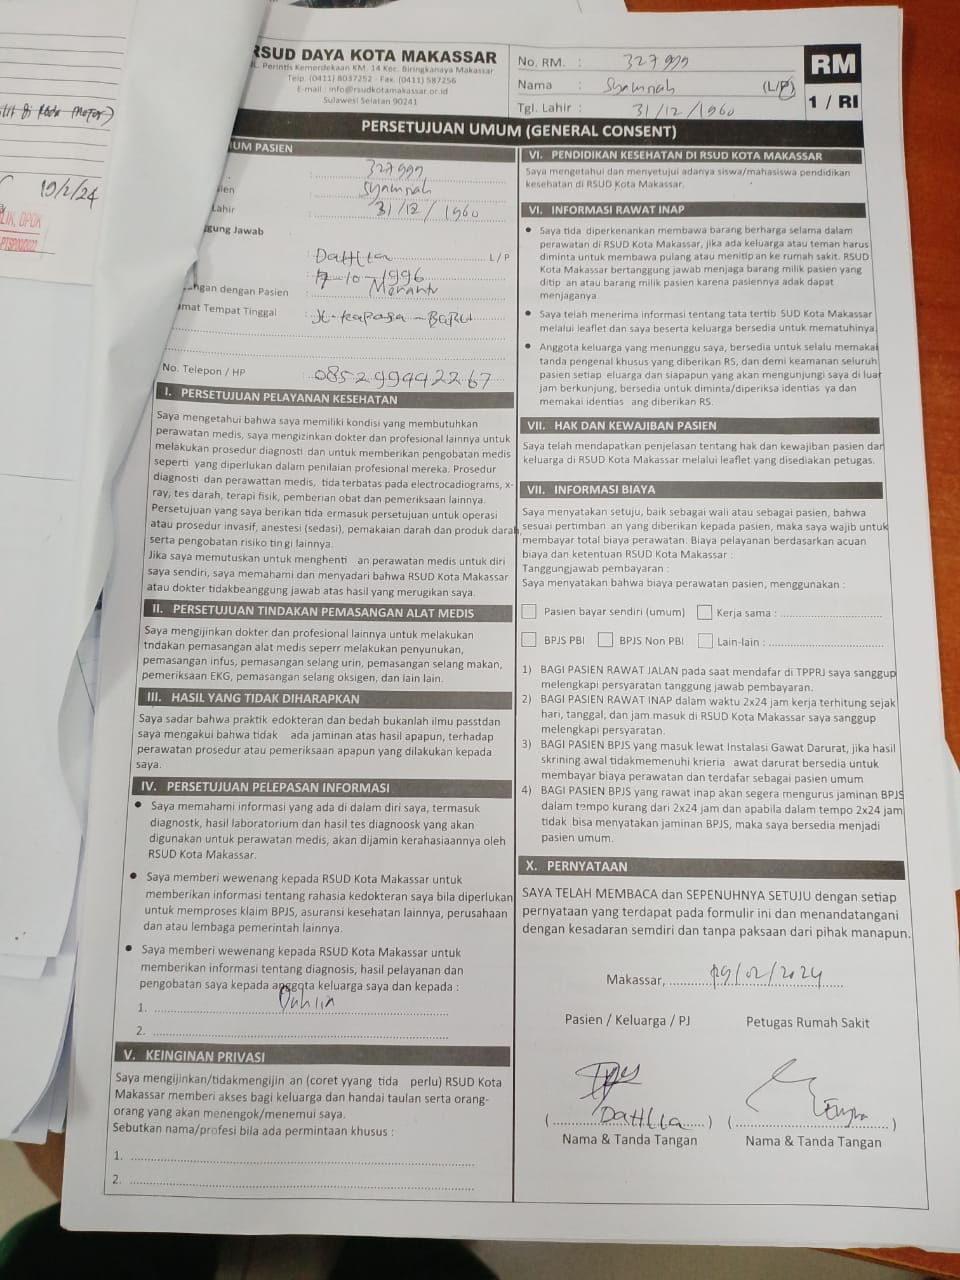 19/2/24
RSUD DAYA KOTA MAKASSAR
JL. Perintis Kemerdekaan KM. 14 Kec. Biringkanaya Makassar
Telp. (0411) 8037252 - Fax. (0411) 587256
E-mail : info@rsudkotamakassar.or.id
Sulawesi Selatan 90241
No. RM. : 327999
Nama : Syamnah (L/P)
Tgl. Lahir : 31/12/1960
RM
1 / RI
PERSETUJUAN UMUM (GENERAL CONSENT)
UM PASIEN
: 327999
ien : Syamnah
Lahir : 31/12/1960
gung Jawab
: Dahlia L / P
: 7-10-1996
ngan dengan Pasien : Menantu
mat Tempat Tinggal : Jl. kapasa - BARU
No. Telepon / HP : 085299942267
I. PERSETUJUAN PELAYANAN KESEHATAN
Saya mengetahui bahwa saya memiliki kondisi yang membutuhkan
perawatan medis, saya mengizinkan dokter dan profesional lainnya untuk
melakukan prosedur diagnosti dan untuk memberikan pengobatan medis
seperti yang diperlukan dalam penilaian profesional mereka. Prosedur
diagnosti dan perawattan medis, tida terbatas pada electrocadiograms, x-
ray, tes darah, terapi fisik, pemberian obat dan pemeriksaan lainnya.
Persetujuan yang saya berikan tida ermasuk persetujuan untuk operasi
atau prosedur invasif, anestesi (sedasi), pemakaian darah dan produk darah,
serta pengobatan risiko tin gi lainnya.
Jika saya memutuskan untuk menghenti an perawatan medis untuk diri
saya sendiri, saya memahami dan menyadari bahwa RSUD Kota Makassar
atau dokter tidakbeanggung jawab atas hasil yang merugikan saya.
II. PERSETUJUAN TINDAKAN PEMASANGAN ALAT MEDIS
Saya mengijinkan dokter dan profesional lainnya untuk melakukan
tndakan pemasangan alat medis seperr melakukan penyunukan,
pemasangan infus, pemasangan selang urin, pemasangan selang makan,
pemeriksaan EKG, pemasangan selang oksigen, dan lain lain.
III. HASIL YANG TIDAK DIHARAPKAN
Saya sadar bahwa praktik edokteran dan bedah bukanlah ilmu passtdan
saya mengakui bahwa tidak ada jaminan atas hasil apapun, terhadap
perawatan prosedur atau pemeriksaan apapun yang dilakukan kepada
saya.
IV. PERSETUJUAN PELEPASAN INFORMASI
• Saya memahami informasi yang ada di dalam diri saya, termasuk
diagnostk, hasil laboratorium dan hasil tes diagnoosk yang akan
digunakan untuk perawatan medis, akan dijamin kerahasiaannya oleh
RSUD Kota Makassar.
• Saya memberi wewenang kepada RSUD Kota Makassar untuk
memberikan informasi tentang rahasia kedokteran saya bila diperlukan
untuk memproses klaim BPJS, asuransi kesehatan lainnya, perusahaan
dan atau lembaga pemerintah lainnya.
• Saya memberi wewenang kepada RSUD Kota Makassar untuk
memberikan informasi tentang diagnosis, hasil pelayanan dan
pengobatan saya kepada anggota keluarga saya dan kepada :
1.
2.
V. KEINGINAN PRIVASI
Saya mengijinkan/tidakmengijin an (coret yyang tida perlu) RSUD Kota
Makassar memberi akses bagi keluarga dan handai taulan serta orang-
orang yang akan menengok/menemui saya.
Sebutkan nama/profesi bila ada permintaan khusus :
1.
2.
VI. PENDIDIKAN KESEHATAN DI RSUD KOTA MAKASSAR
Saya mengetahui dan menyetujui adanya siswa/mahasiswa pendidikan
kesehatan di RSUD Kota Makassar.
VI. INFORMASI RAWAT INAP
• Saya tida diperkenankan membawa barang berharga selama dalam
perawatan di RSUD Kota Makassar, jika ada keluarga atau teman harus
diminta untuk membawa pulang atau menitip an ke rumah sakit. RSUD
Kota Makassar bertanggung jawab menjaga barang milik pasien yang
ditip an atau barang milik pasien karena pasiennya adak dapat
menjaganya.
• Saya telah menerima informasi tentang tata tertib SUD Kota Makassar
melalui leaflet dan saya beserta keluarga bersedia untuk mematuhinya.
• Anggota keluarga yang menunggu saya, bersedia untuk selalu memakai
tanda pengenal khusus yang diberikan RS, dan demi keamanan seluruh
pasien setiap eluarga dan siapapun yang akan mengunjungi saya di luar
jam berkunjung, bersedia untuk diminta/diperiksa identias ya dan
memakai identias ang diberikan RS.
VII. HAK DAN KEWAJIBAN PASIEN
Saya telah mendapatkan penjelasan tentang hak dan kewajiban pasien dan
keluarga di RSUD Kota Makassar melalui leaflet yang disediakan petugas.
VII. INFORMASI BIAYA
Saya menyatakan setuju, baik sebagai wali atau sebagai pasien, bahwa
sesuai pertimban an yang diberikan kepada pasien, maka saya wajib untuk
membayar total biaya perawatan. Biaya pelayanan berdasarkan acuan
biaya dan ketentuan RSUD Kota Makassar :
Tanggungjawab pembayaran :
Saya menyatakan bahwa biaya perawatan pasien, menggunakan :
Pasien bayar sendiri (umum) Kerja sama :
BPJS PBI BPJS Non PBI Lain-lain :
1) BAGI PASIEN RAWAT JALAN pada saat mendafar di TPPRJ saya sanggup
melengkapi persyaratan tanggung jawab pembayaran.
2) BAGI PASIEN RAWAT INAP dalam waktu 2x24 jam kerja terhitung sejak
hari, tanggal, dan jam masuk di RSUD Kota Makassar saya sanggup
melengkapi persyaratan.
3) BAGI PASIEN BPJS yang masuk lewat Instalasi Gawat Darurat, jika hasil
skrining awal tidakmemenuhi krieria awat darurat bersedia untuk
membayar biaya perawatan dan terdafar sebagai pasien umum
4) BAGI PASIEN BPJS yang rawat inap akan segera mengurus jaminan BPJS
dalam tempo kurang dari 2x24 jam dan apabila dalam tempo 2x24 jam
tidak bisa menyatakan jaminan BPJS, maka saya bersedia menjadi
pasien umum.
X. PERNYATAAN
SAYA TELAH MEMBACA dan SEPENUHNYA SETUJU dengan setiap
pernyataan yang terdapat pada formulir ini dan menandatangani
dengan kesadaran semdiri dan tanpa paksaan dari pihak manapun.
Makassar, 19/02/2024
Pasien / Keluarga / PJ Petugas Rumah Sakit
(Dahlia) ( )
Nama & Tanda Tangan Nama & Tanda Tangan